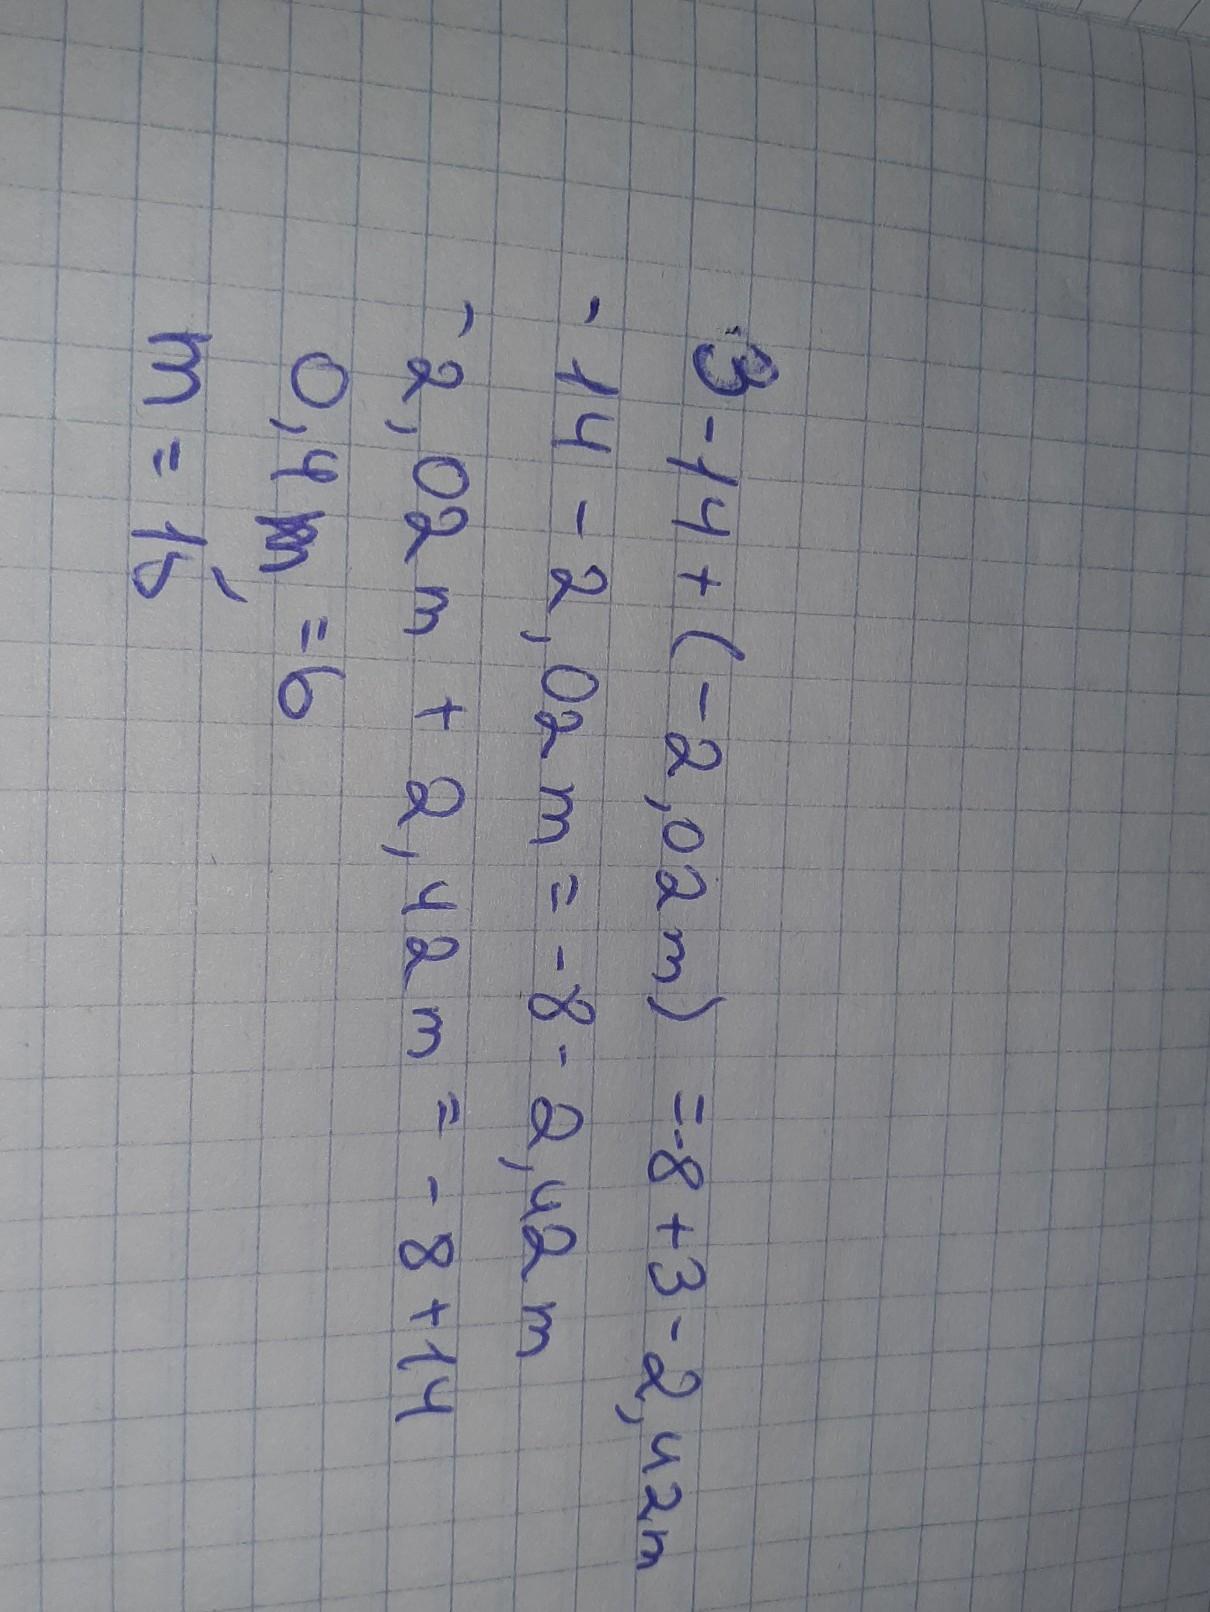 3-14+(-2,02m) =-8+3-2,42m
-14-2,02m=-8-2,42m
-2,02m+2,42m=-8+14
0,4m=6
m=15